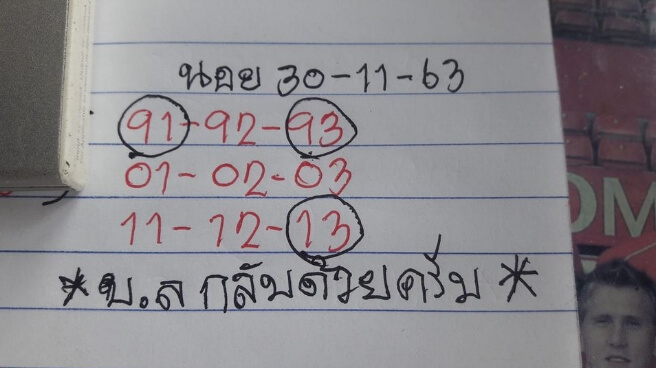 นอย 30-11-63
91-92-93
01-02-03
11-12-13
*บ.ล กลับด้วยครับ*
OM